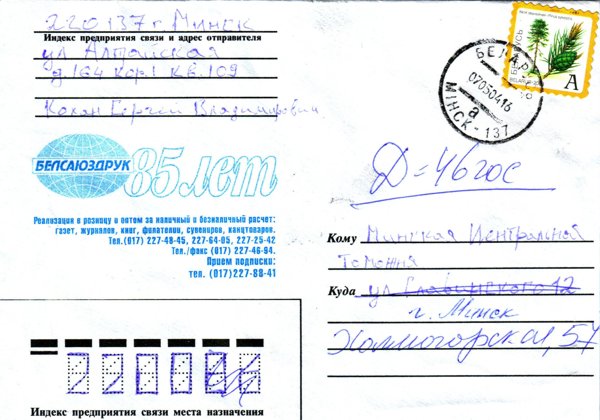 220137 г Минск
Индекс предприятия связи и адрес отправителя
ул Алтайская
д. 164 кор.1 кв. 109
Кохан Сергей Владимирович
БЕЛАРУСЬ
A
БЕЛАРУСЬ
070504 16
а
МІНСК - 137
БЕЛСАЮЗДРУК
85 лет
Реализация в розницу и оптом за наличный и безналичный расчет:
газет, журналов, книг, филателии, сувениров, канцтоваров.
Тел.(017) 227-48-45, 227-64-05, 227-25-42
Тел./факс (017) 227-46-94.
Прием подписки:
тел. (017)227-88-41
Кому Минская Центральная
Томожня
Куда ул 12
г. Минск
Холмогорская, 57
Индекс предприятия связи места назначения